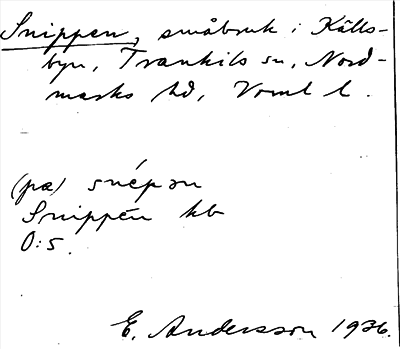 Snippen, småbruk i Källs-
byn, Trankils sn, Nord-
marks hd, Vrml l.
(pæ) snépən
Snippén kb
0:5.
E. Andersson 1936.